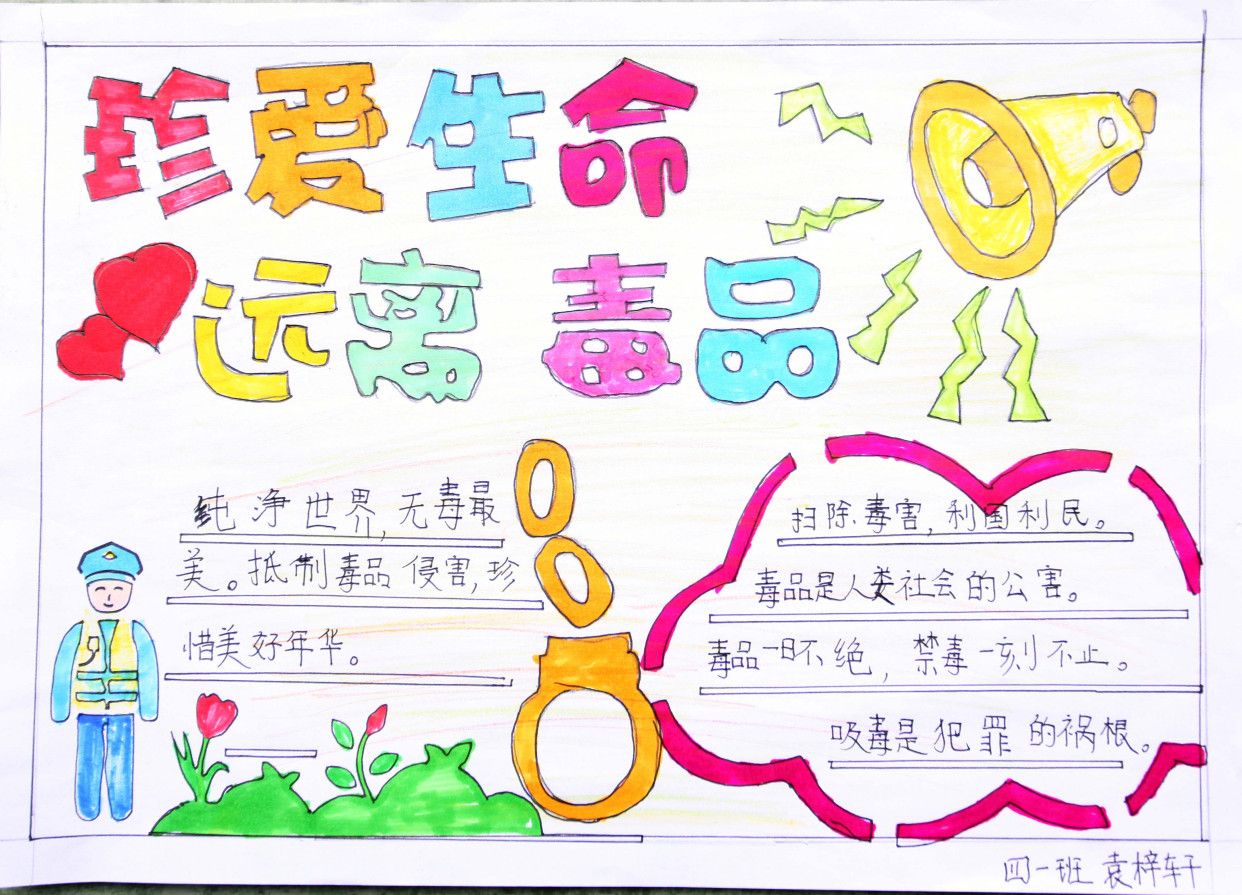 珍爱生命
远离毒品
纯净世界,无毒最
美。抵制毒品侵害,珍
惜美好年华。
扫除毒害,利国利民。
毒品是人类社会的公害。
毒品一日不绝,禁毒一刻不止。
吸毒是犯罪的祸根。
四一班 袁梓轩